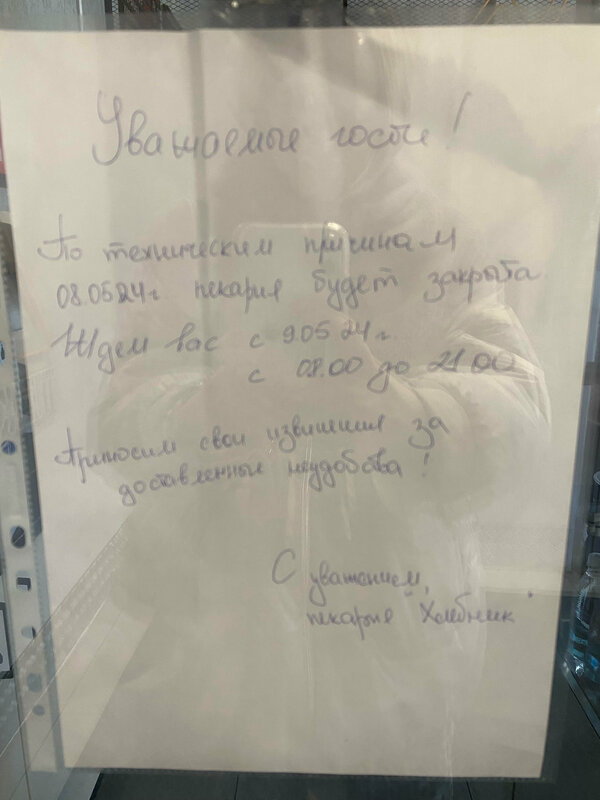 Уважаемые гости!
По техническим причинам
08.05.24г пекария будет закрыта
Ждем вас с 9.05 24 г.
с 08.00 до 21 00
Приносим свои извинения за
доставленные неудобства!
С уважением,
пекария "Хлебник"